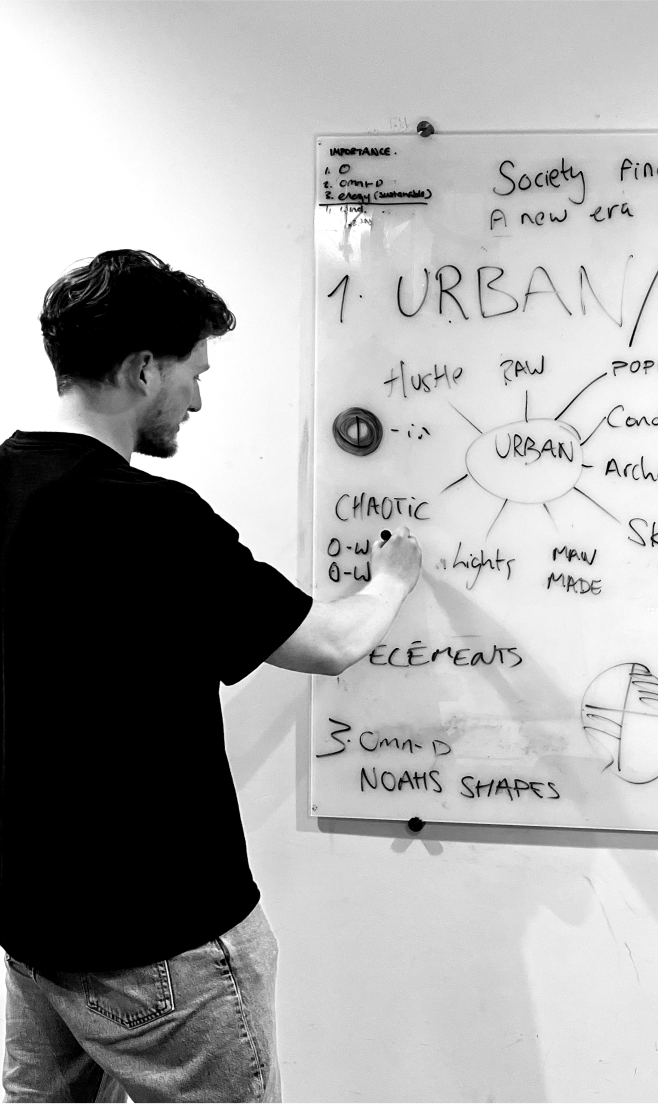 IMPORTANCE.
1. O
2. OMNI-D
3. energy (sustainable)
Society
A new era
1. URBAN/
Hustle
RAW
POP
URBAN
Conc
Arch
CHAOTIC
Sk
O-W
O-W
Lights
MAN
MADE
ELEMENTS
3. Omni-D
NOAHS SHAPES